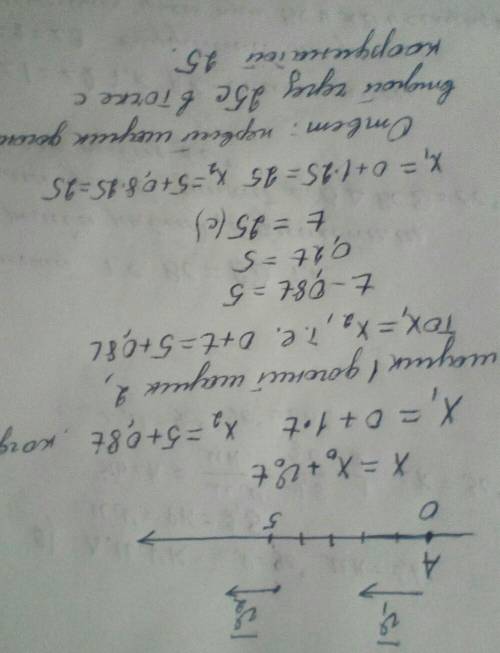 v₁ v₂
A
0 5
x = x₀ + v₀t
x₁ = 0 + 1·t x₂ = 5 + 0,8t
шарик 1 догонит шарик 2,
то x₁ = x₂, т.е. 0 + t = 5 + 0,8t
t - 0,8t = 5
0,2t = 5
t = 25 (с)
x₁ = 0 + 1·25 = 25 x₂ = 5 + 0,8·25 = 25
Ответ: первый шарик
второй через 25с в точке с
координатой 25.